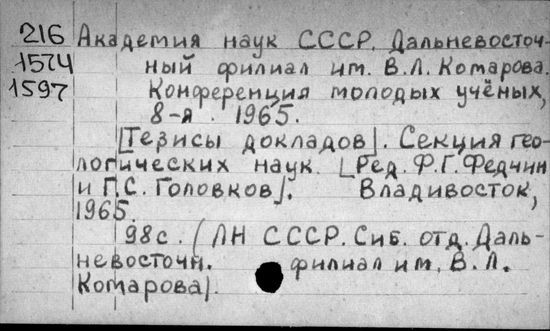 216 Академия наук СССР. Дальневосточ-
1574 ный филиал им. В.Л. Комарова.
1597 Конференция молодых учёных,
8-я. 1965.
[Тезисы докладов]. Секция гео-
логических наук. [Ред. Ф.Г. Федчин
и Г.С. Головков]. Владивосток,
1965.
98с. (АН СССР. Сиб. отд. Даль-
невосточн. филиал им. В.Л.
Комарова).